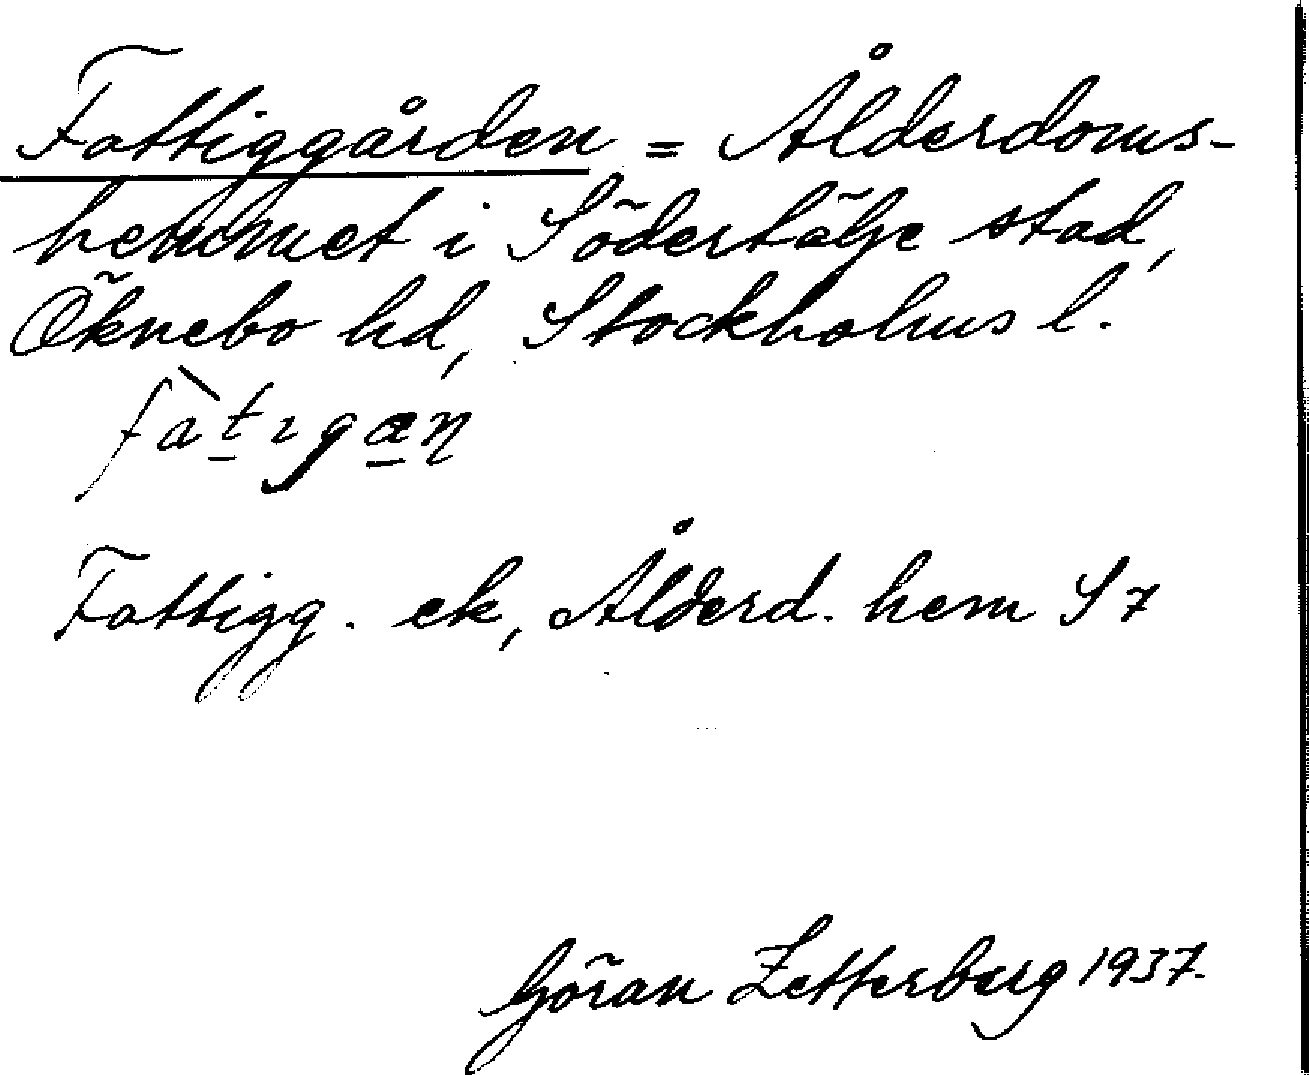 Fattiggården = Ålderdoms-
hemmet i Södertälje stad,
Öknebo hd, Stockholms l.
fàtıgæn
Fattigg. ek, Ålderd. hem S 7
Göran Zetterberg 1937.